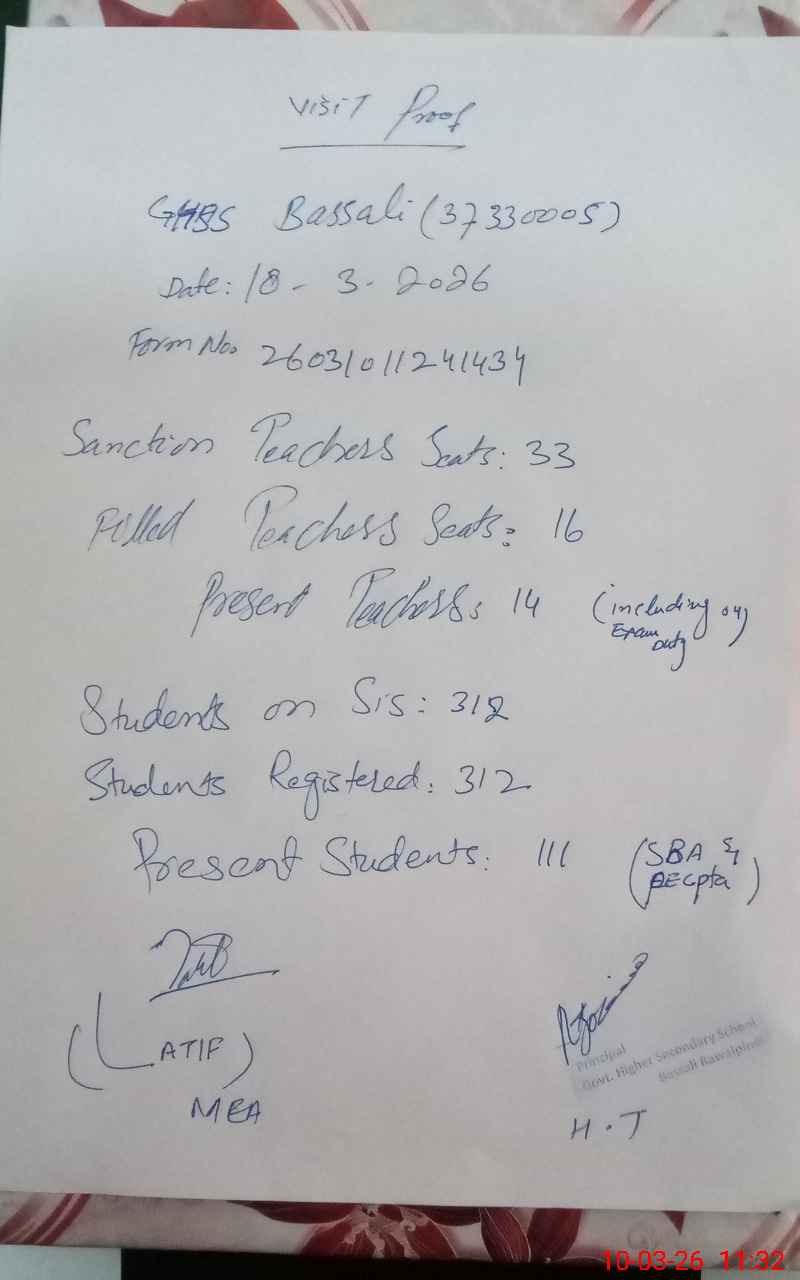 Visit Proof
GHSS Bassali (37330005)
Date: 10-3-2026
Form No. 26031011241434
Sanction Teachers Seats: 33
Filled Teachers Seats: 16
Present Teachers: 14 (including 04
Exam
Duty)
Students on Sis: 312
Students Registered: 312
Present Students: 111 (SBA &
PECpta)
(LATIF)
MEA
Principal
Govt. Higher Secondary School
Bassali Rawalpindi
H.T
10-03-26 11:32